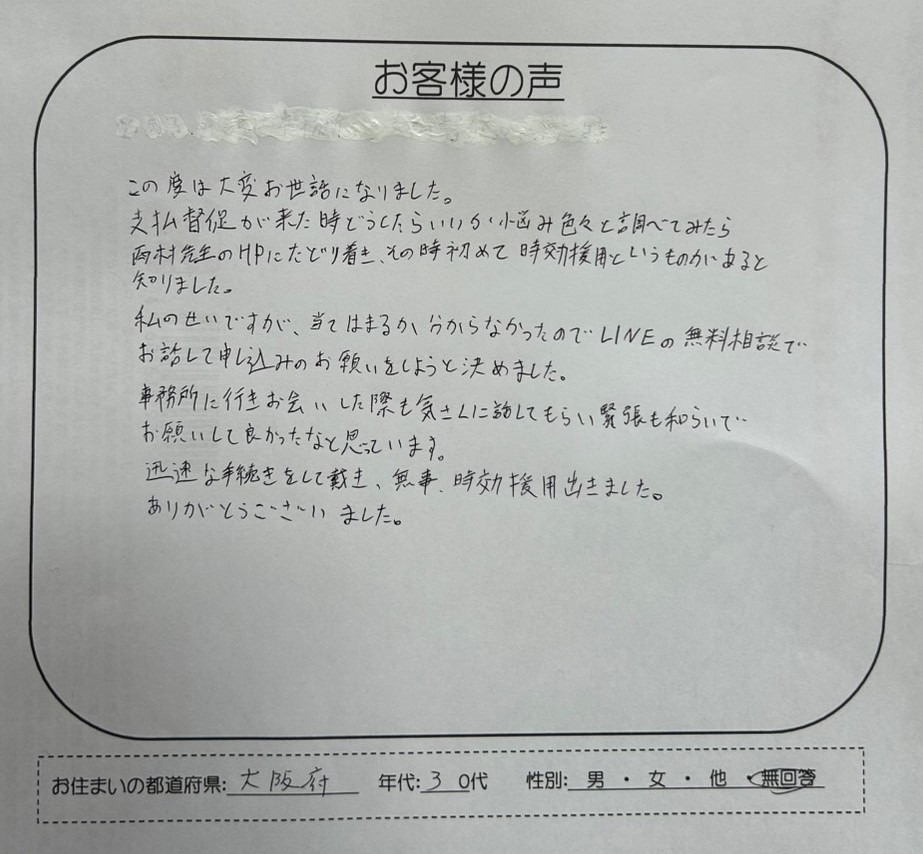 お客様の声
この度は大変お世話になりました。
支払督促が来た時どうしたらいいか悩み色々と調べてみたら
西村先生のHPにたどり着き、その時初めて時効援用というものがあると
知りました。
私のせいですが、当てはまるか分からなかったのでLINEの無料相談で
お話して申し込みのお願いをしようと決めました。
事務所に行きお会いした際も気さくに話してもらい緊張も和らいで
お願いして良かったなと思っています。
迅速な手続きをして戴き、無事、時効援用出きました。
ありがとうございました。
お住まいの都道府県: 大阪府 年代: 30代 性別: 男 ・ 女 ・ 他 ・ 無回答